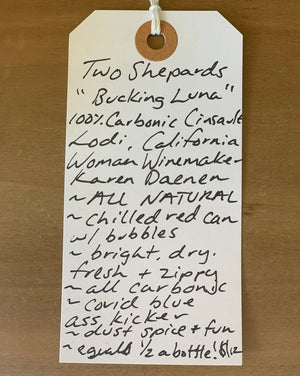 Two Shepards
"Bucking Luna"
100% Carbonic Cinsault
Lodi, California
Woman Winemaker
Karen Daenen
~ ALL NATURAL
~ chilled red can
w/ bubbles
~ bright, dry.
fresh + zippy
~ all carbonic
~ covid blue
ass kicker
~ dust spice + fun
~ equals 1/2 a bottle!